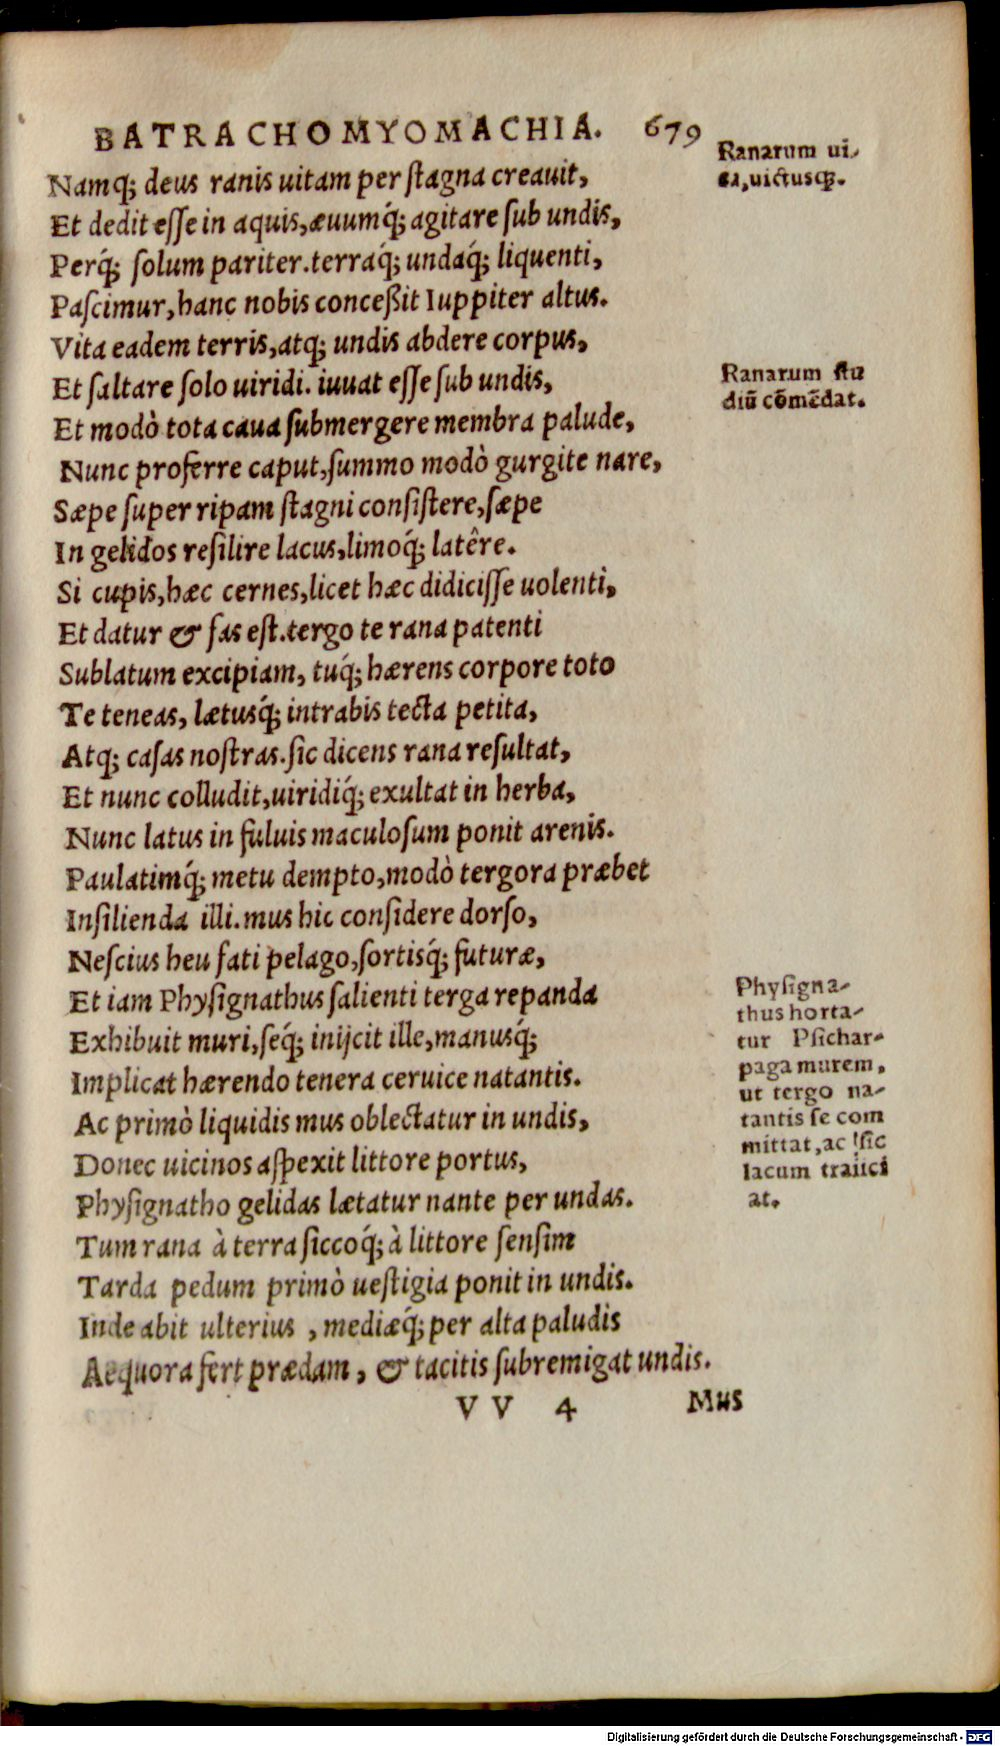 BATRACHOMYOMACHIA. 679
Namq; deus ranis uitam per ſtagna creauit,
Et dedit eſſe in aquis, æuumq́; agitare ſub undis,
Perq́; ſolum pariter. terraq́; undaq́; liquenti,
Paſcimur, hanc nobis conceßit Iuppiter altus.
Vita eadem terris, atq; undis abdere corpus,
Et ſaltare ſolo uiridi. iuuat eſſe ſub undis,
Et modò tota caua ſubmergere membra palude,
Nunc proferre caput, ſummo modò gurgite nare,
Sæpe ſuper ripam ſtagni conſiſtere, ſæpe
In gelidos reſilire lacus, limoq́; latêre.
Si cupis, hæc cernes, licet hæc didiciſſe uolenti,
Et datur & fas eſt. tergo te rana patenti
Sublatum excipiam, tuq́; hærens corpore toto
Te teneas, lætusq́; intrabis tecta petita,
Atq; caſas noſtras. ſic dicens rana reſultat,
Et nunc colludit, uiridiq́; exultat in herba,
Nunc latus in fuluis maculoſum ponit arenis.
Paulatimq́; metu dempto, modò tergora præbet
Inſilienda illi. mus hic conſidere dorſo,
Neſcius heu fati pelago, ſortisq́; futuræ,
Et iam Phyſignathus ſalienti terga repanda
Exhibuit muri, ſeq́; inijcit ille, manusq́;
Implicat hærendo tenera ceruice natantis.
Ac primò liquidis mus oblectatur in undis,
Donec uicinos aſpexit littore portus,
Phyſignatho gelidas lætatur nante per undas.
Tum rana à terra ſiccoq́; à littore ſenſim
Tarda pedum primò ueſtigia ponit in undis.
Inde abit ulterius, mediæq́; per alta paludis
Aequora fert prædam, & tacitis ſubremigat undis.
VV 4 Mus
Ranarum ui-
ta, uictusq;.
Ranarum ſtu
diū cōmēdat.
Phyſigna-
thus horta-
tur Pſichar-
paga murem,
ut tergo na-
tantis ſe com
mittat, ac ſic
lacum traijci
at.
Digitalisierung gefördert durch die Deutsche Forschungsgemeinschaft - DFG